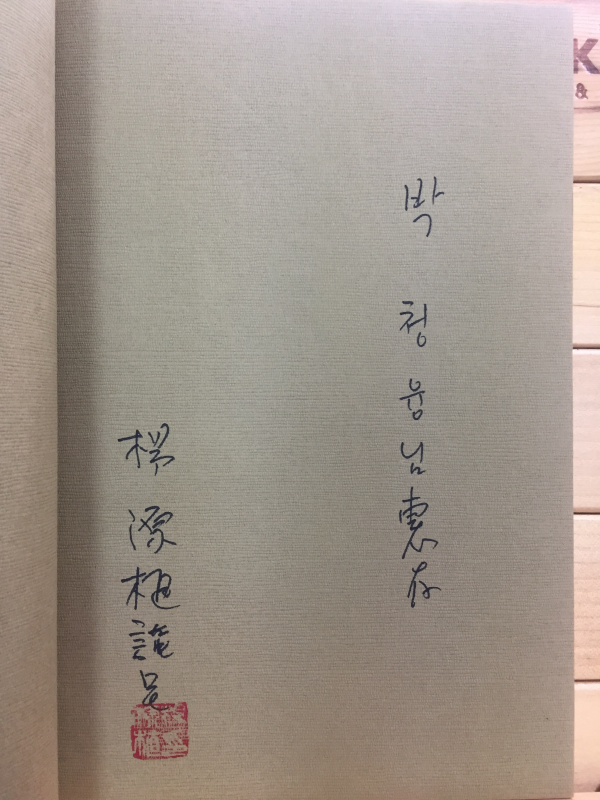 박 청웅님 惠存
楊 植 謹呈
K
&